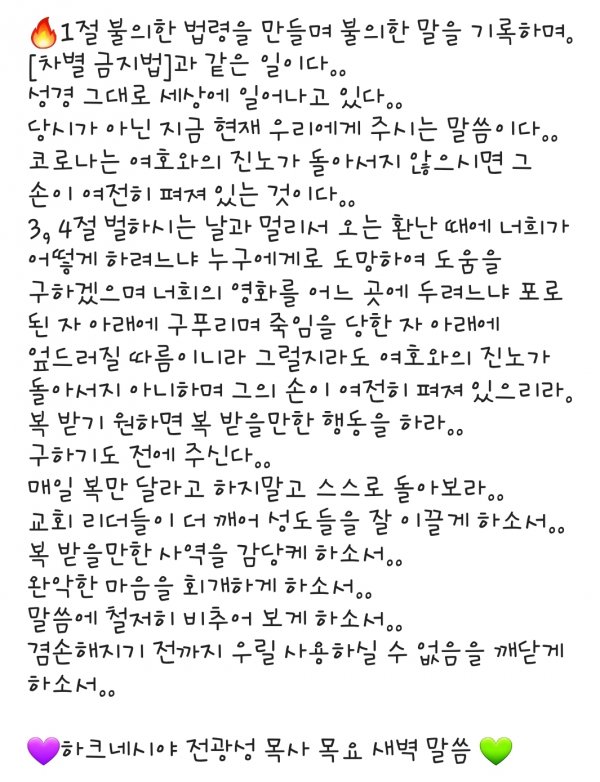 🔥1절 불의한 법령을 만들며 불의한 말을 기록하며。
[차별 금지법]과 같은 일이다。。
성경 그대로 세상에 일어나고 있다。。
당시가 아닌 지금 현재 우리에게 주시는 말씀이다。。
코로나는 여호와의 진노가 돌아서지 않으시면 그
손이 여전히 펴져 있는 것이다。。
3, 4절 벌하시는 날과 멀리서 오는 환난 때에 너희가
어떻게 하려느냐 누구에게로 도망하여 도움을
구하겠으며 너희의 영화를 어느 곳에 두려느냐 포로
된 자 아래에 구푸리며 죽임을 당한 자 아래에
엎드러질 따름이니라 그럴지라도 여호와의 진노가
돌아서지 아니하며 그의 손이 여전히 펴져 있으리라。
복 받기 원하면 복 받을만한 행동을 하라。。
구하기도 전에 주신다。。
매일 복만 달라고 하지말고 스스로 돌아보라。。
교회 리더들이 더 깨어 성도들을 잘 이끌게 하소서。。
복 받을만한 사역을 감당케 하소서。。
완악한 마음을 회개하게 하소서。。
말씀에 철저히 비추어 보게 하소서。。
겸손해지기 전까지 우릴 사용하실 수 없음을 깨닫게
하소서。。
💜하크네시야 전광성 목사 목요 새벽 말씀 💚